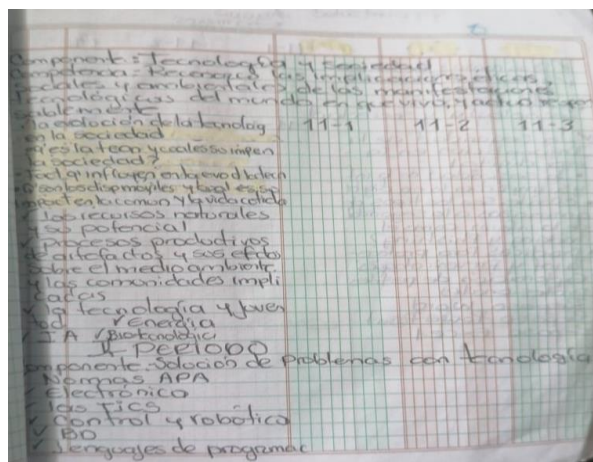 Componente: Tecnología y Sociedad
Competencia: Reconozco las implicaciones éticas,
sociales y ambientales de las manifestaciones
Tecnológicas del mundo en que vivo, y actuo respon
sablemente
la evolución de la tecnolog 11-1 11-2 11-3
en la sociedad
es la tecn y cuales su impen
la sociedad?
Fact q influyen en la evo d la tech
son los disp moviles y cual es su
impact en la comun y la vida cotidia
los recursos naturales
y su potencial
procesos productivos
de artefactos y sus efectos
sobre el medio ambiente
y las comunidades impli
cadas
la tecnología y juven
tud ✓ energia
✓ IA ✓ Biotecnologic
II PERIODO
Componente: Solución de problemas con tecnología
✓ Normas APA
✓ Electrónica
✓ las Tics
✓ Control y robótica
✓ BD
✓ lenguajes de programac